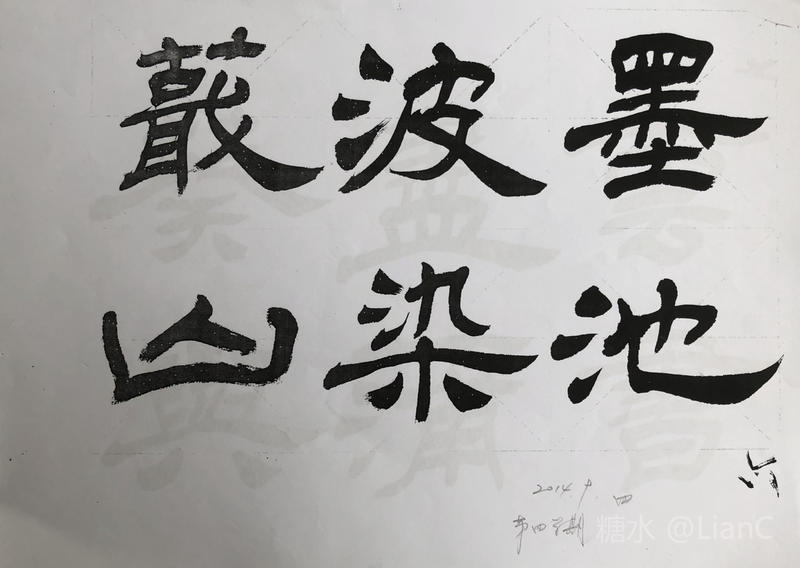 墨池
波染
蕺山
2014.9.
四
第四学期
糖水 @LianC